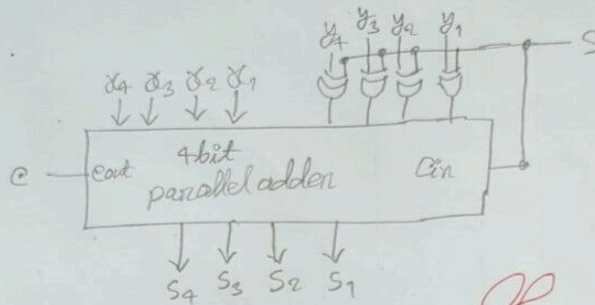 y4 y3 y2 y1
S
x4 x3 x2 x1
C
Cout
4-bit
parallel adder
Cin
S4 S3 S2 S1